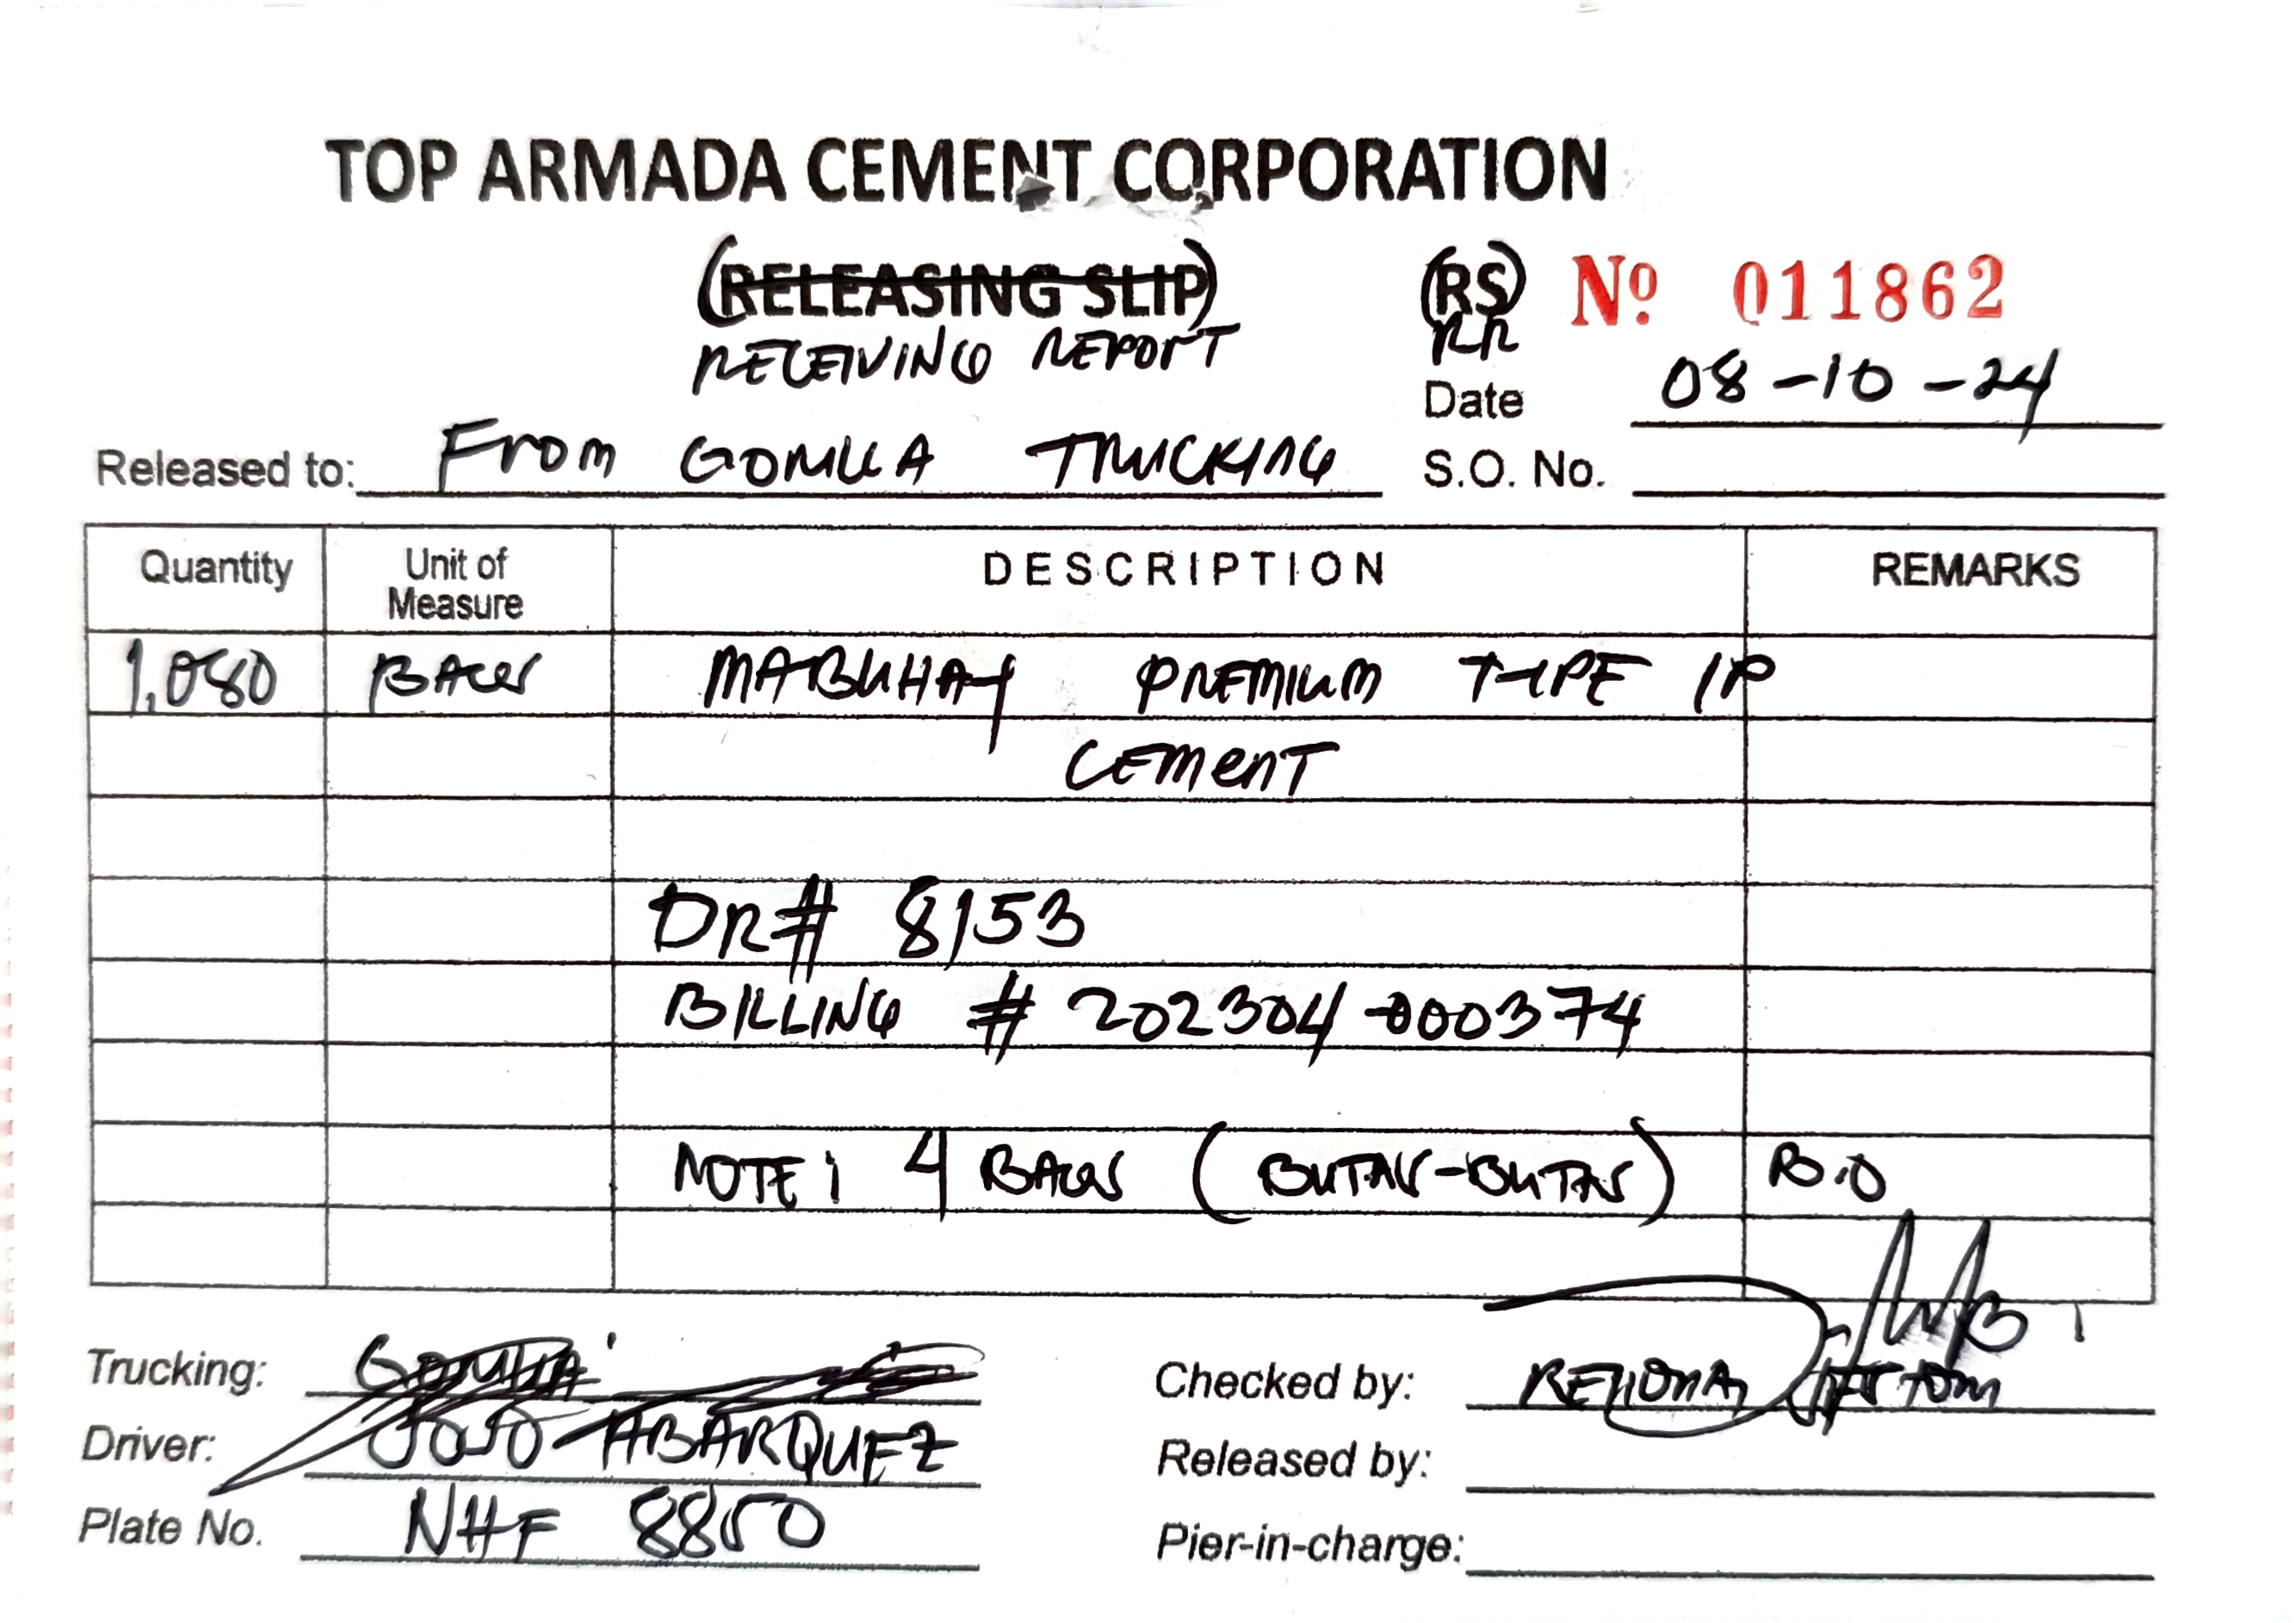 TOP ARMADA CEMENT CORPORATION
(RELEASING SLIP) (RS) Nº 011862
RECEIVING REPORT RR
Date 08-10-24
Released to: From GOMULA TRUCKING S.O. No.
Quantity Unit of Measure DESCRIPTION REMARKS
1,080 BAGS MABUHAY PREMIUM TYPE 1P
CEMENT
DR# 8153
BILLING # 202304-000374
NOTE: 4 BAGS (BUTAS-BUTAS) B.O
Trucking:
Checked by:
Driver: JOJO ABARQUEZ
Released by:
Plate No. NHF 8850
Pier-in-charge: